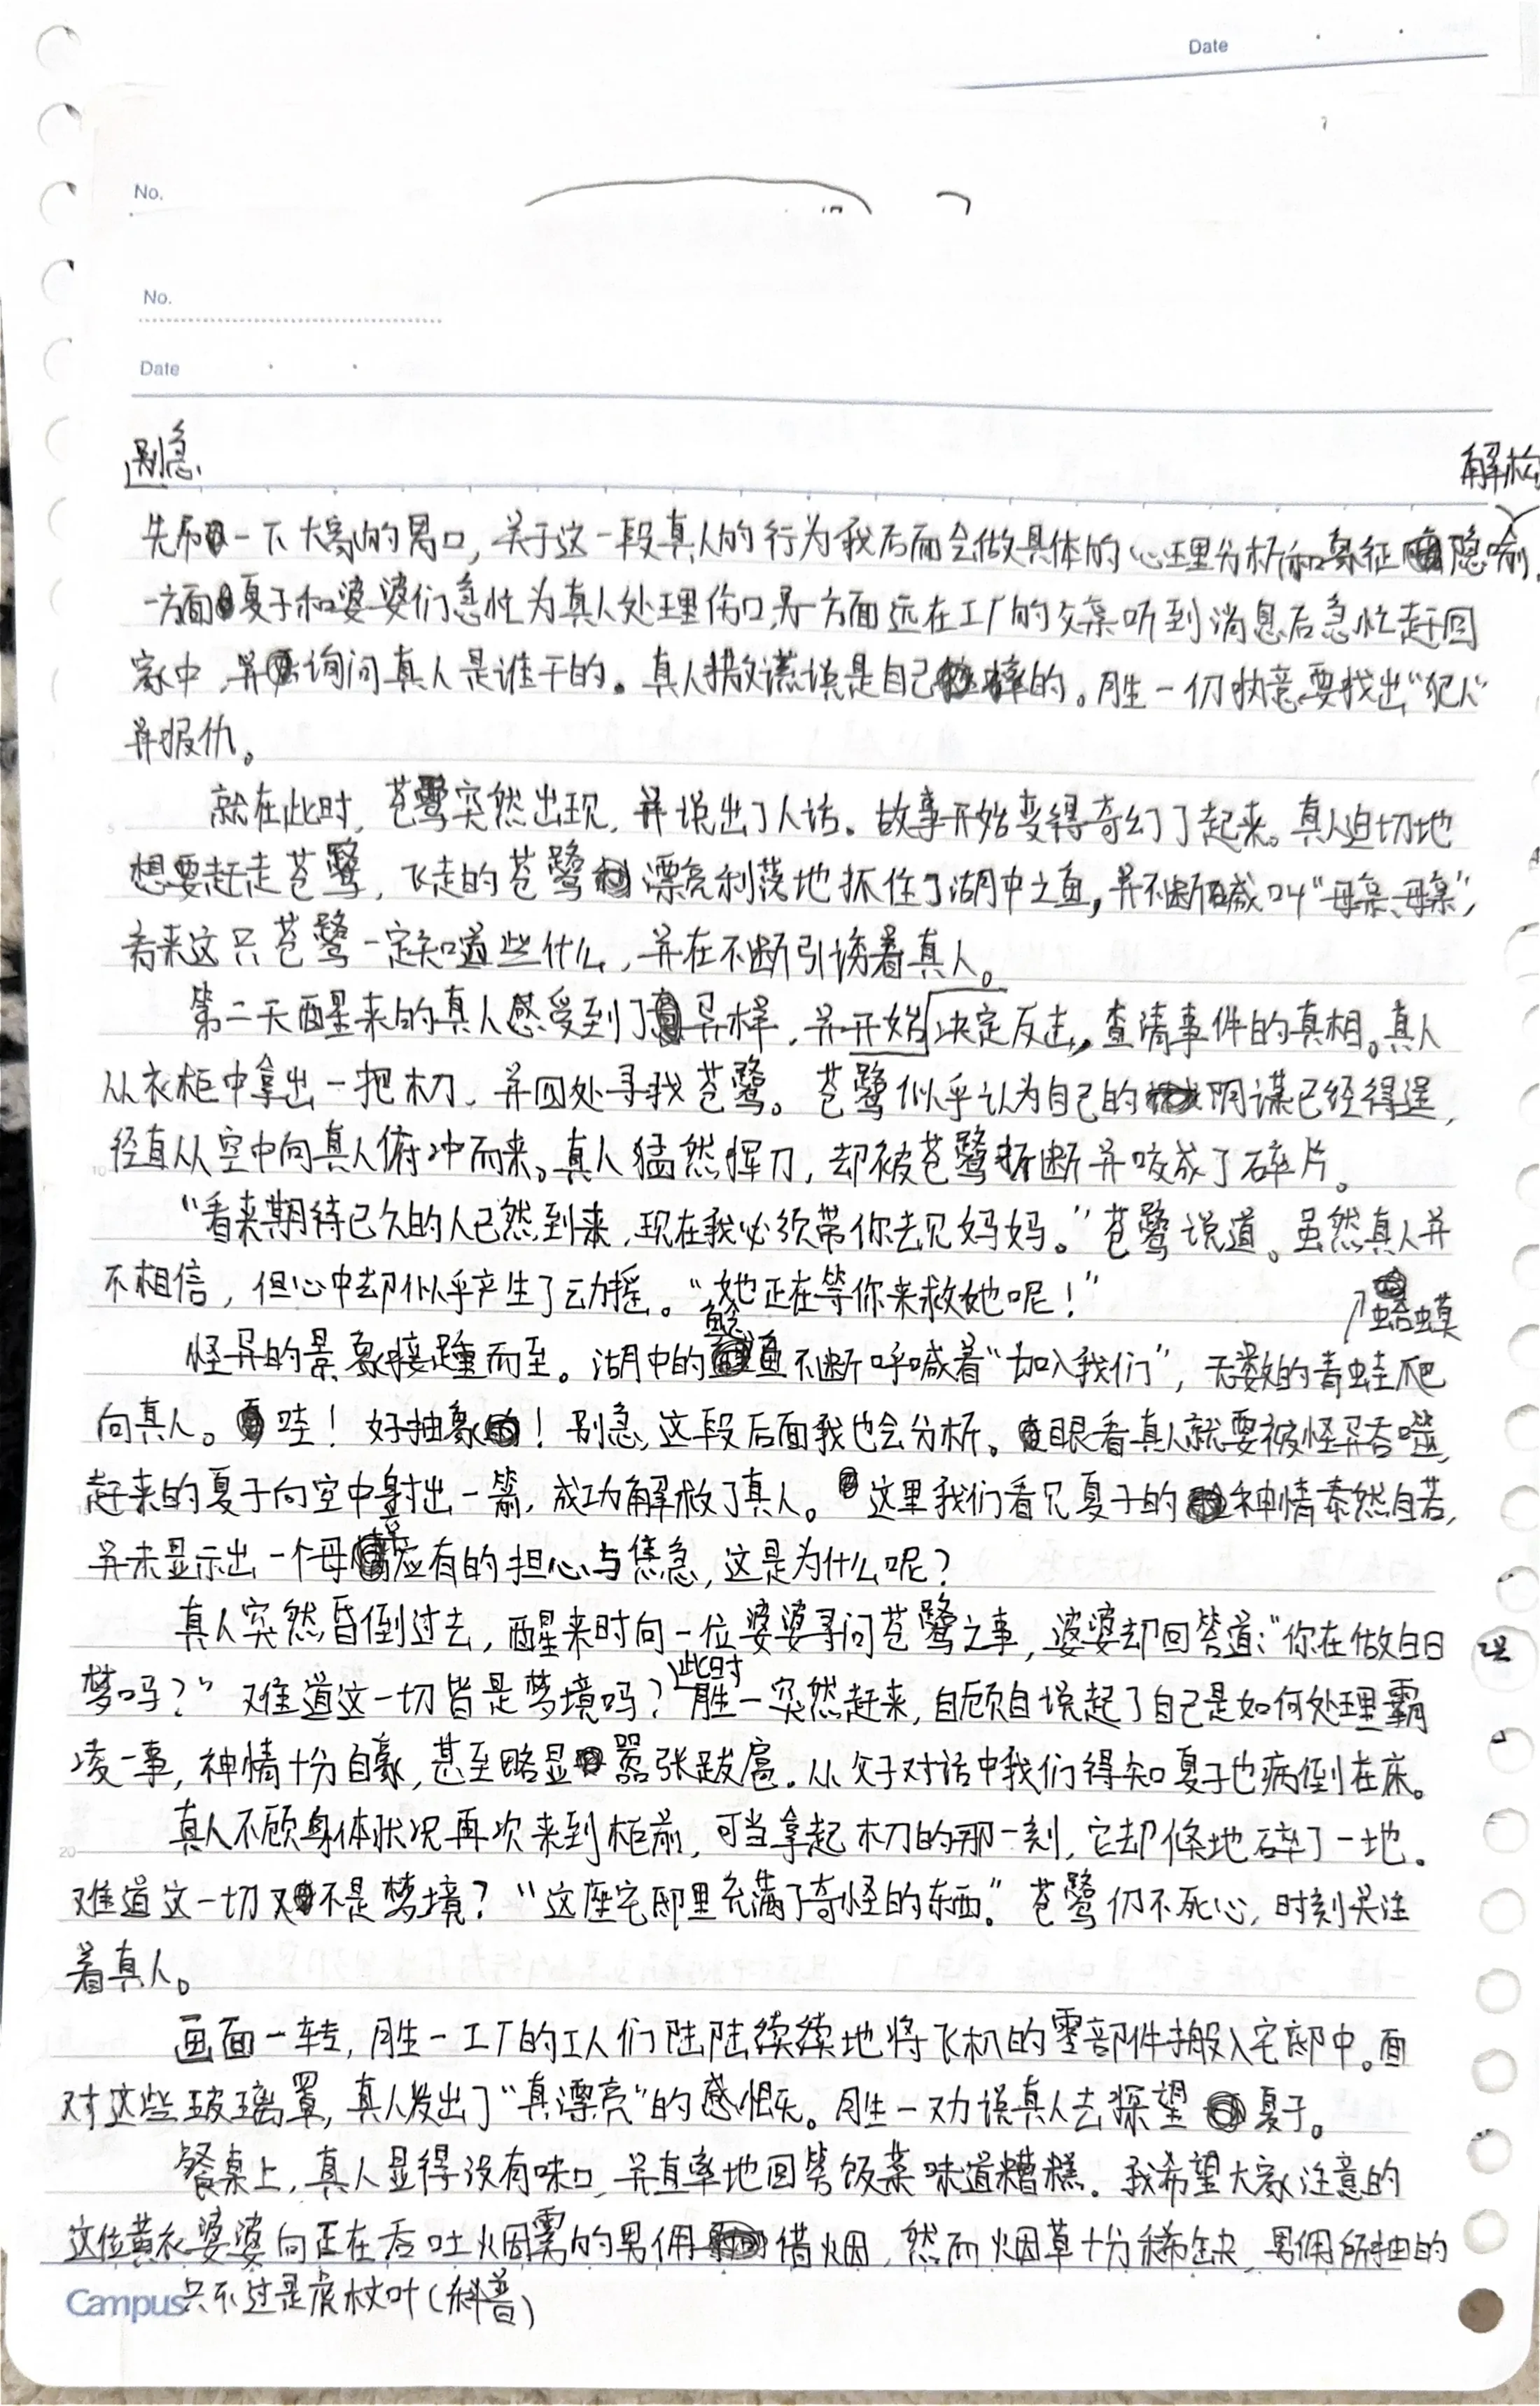 Date
No.
No.
Date
别急
解构
先吊一下大家的胃口，关于这一段真人的行为我后面会做具体的心理分析和象征隐喻，
一方面夏子和婆婆们急忙为真人处理伤口，另一方面远在工厂的父亲听到消息后急忙赶回
家中，并询问真人是谁干的。真人撒谎说是自己摔的。胜一仍执意要找出“犯人”
并报仇。
就在此时，苍鹭突然出现，并说出了人话。故事开始变得奇幻了起来。真人迫切地
想要赶走苍鹭，飞走的苍鹭漂亮利落地抓住了湖中之鱼，并不断喊叫“母亲、母亲”，
看来这只苍鹭一定知道些什么，并在不断引诱着真人。
第二天醒来的真人感受到了异样，并开始决定反击，查清事件的真相。真人
从衣柜中拿出一把木刀，并四处寻找苍鹭。苍鹭似乎认为自己的阴谋已经得逞，
径直从空中向真人俯冲而来。真人猛然挥刀，却被苍鹭折断并咬成了碎片。
“看来期待已久的人已然到来，现在我必须带你去见妈妈。”苍鹭说道。虽然真人并
不相信，但心中却似乎产生了动摇。“她正在等你来救她呢！”
蛤蟆
怪异的景象接踵而至。湖中的鲶鱼不断呼喊着“加入我们”，无数的青蛙爬
向真人。哇！好抽象！别急，这段后面我也会分析。眼看真人就要被怪异吞噬，
赶来的夏子向空中射出一箭，成功解救了真人。这里我们看见夏子的神情泰然自若，
并未显示出一个母亲应有的担心与焦急，这是为什么呢？
真人突然昏倒过去，醒来时向一位婆婆寻问苍鹭之事，婆婆却回答道：“你在做白日
梦吗？”难道这一切皆是梦境吗？此时胜一突然赶来，自顾自说起了自己是如何处理霸
凌一事，神情十分自豪，甚至略显嚣张跋扈。从父子对话中我们得知夏子也病倒在床。
真人不顾身体状况再次来到柜前，可当拿起木刀的那一刻，它却倏地碎了一地。
难道这一切又不是梦境？“这座宅邸里充满了奇怪的东西。”苍鹭仍不死心，时刻关注
着真人。
画面一转，胜一工厂的工人们陆陆续续地将飞机的零部件搬入宅邸中。面
对这些玻璃罩，真人发出了“真漂亮”的感慨。胜一劝说真人去探望夏子。
餐桌上，真人显得没有味口，并直率地回答饭菜味道糟糕。我希望大家注意的
这位黄衣婆婆向正在吞吐烟雾的男佣借烟，然而烟草十分稀缺，男佣所抽的
只不过是虎杖叶（科普）
Campus